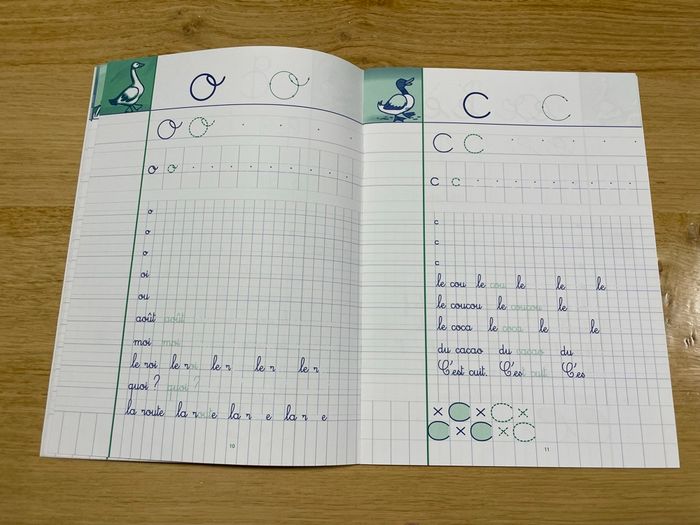 o o
o o
o o
o
o
o
oi
ou
août août
moi moi
le roi le roi le r le r le r
quoi ? quoi ?
la route la route la r e la r e
10
c c
c c
c c
c
c
c
le cou le cou le le le
le coucou le coucou le
le coca le coca le le
du cacao du cacao du
C'est cuit. C'est cuit. C'es
11